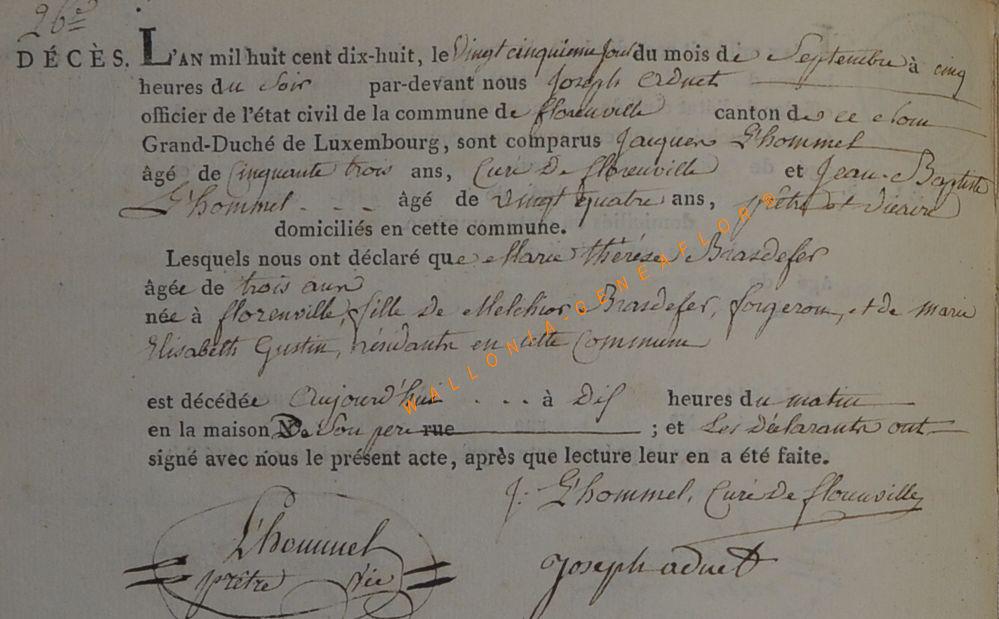 26e
DÉCÈS. L'AN mil huit cent dix-huit, le Vingt cinquieme jour du mois de Septembre à cinq
heures du Soir par-devant nous Joseph Aduet
officier de l'état civil de la commune de florenville canton de ce nom
Grand-Duché de Luxembourg, sont comparus Jacques L'hommel
âgé de Cinquante trois ans, Curé De florenville et Jean-Baptiste
L'hommel . - - âgé de Vingt quatre ans, prêtre et vicaire
domiciliés en cette commune.
Lesquels nous ont déclaré que Marie thérése Brasdefer
âgée de trois ans
née à florenville, fille De Melchior Brasdefer, forgeron, et de marie
Elisabeth Gustin, résidants en cette Commune
est décédée aujourd'hui . . . à Dix heures du matin
en la maison De Son pere rue ; et Les déclarants ont
signé avec nous le présent acte, après que lecture leur en a été faite.
J: L'hommel, Curé De florenville
L'hommel
prêtre vic
Joseph aduet
WALLONIA-GENEAFLOR®